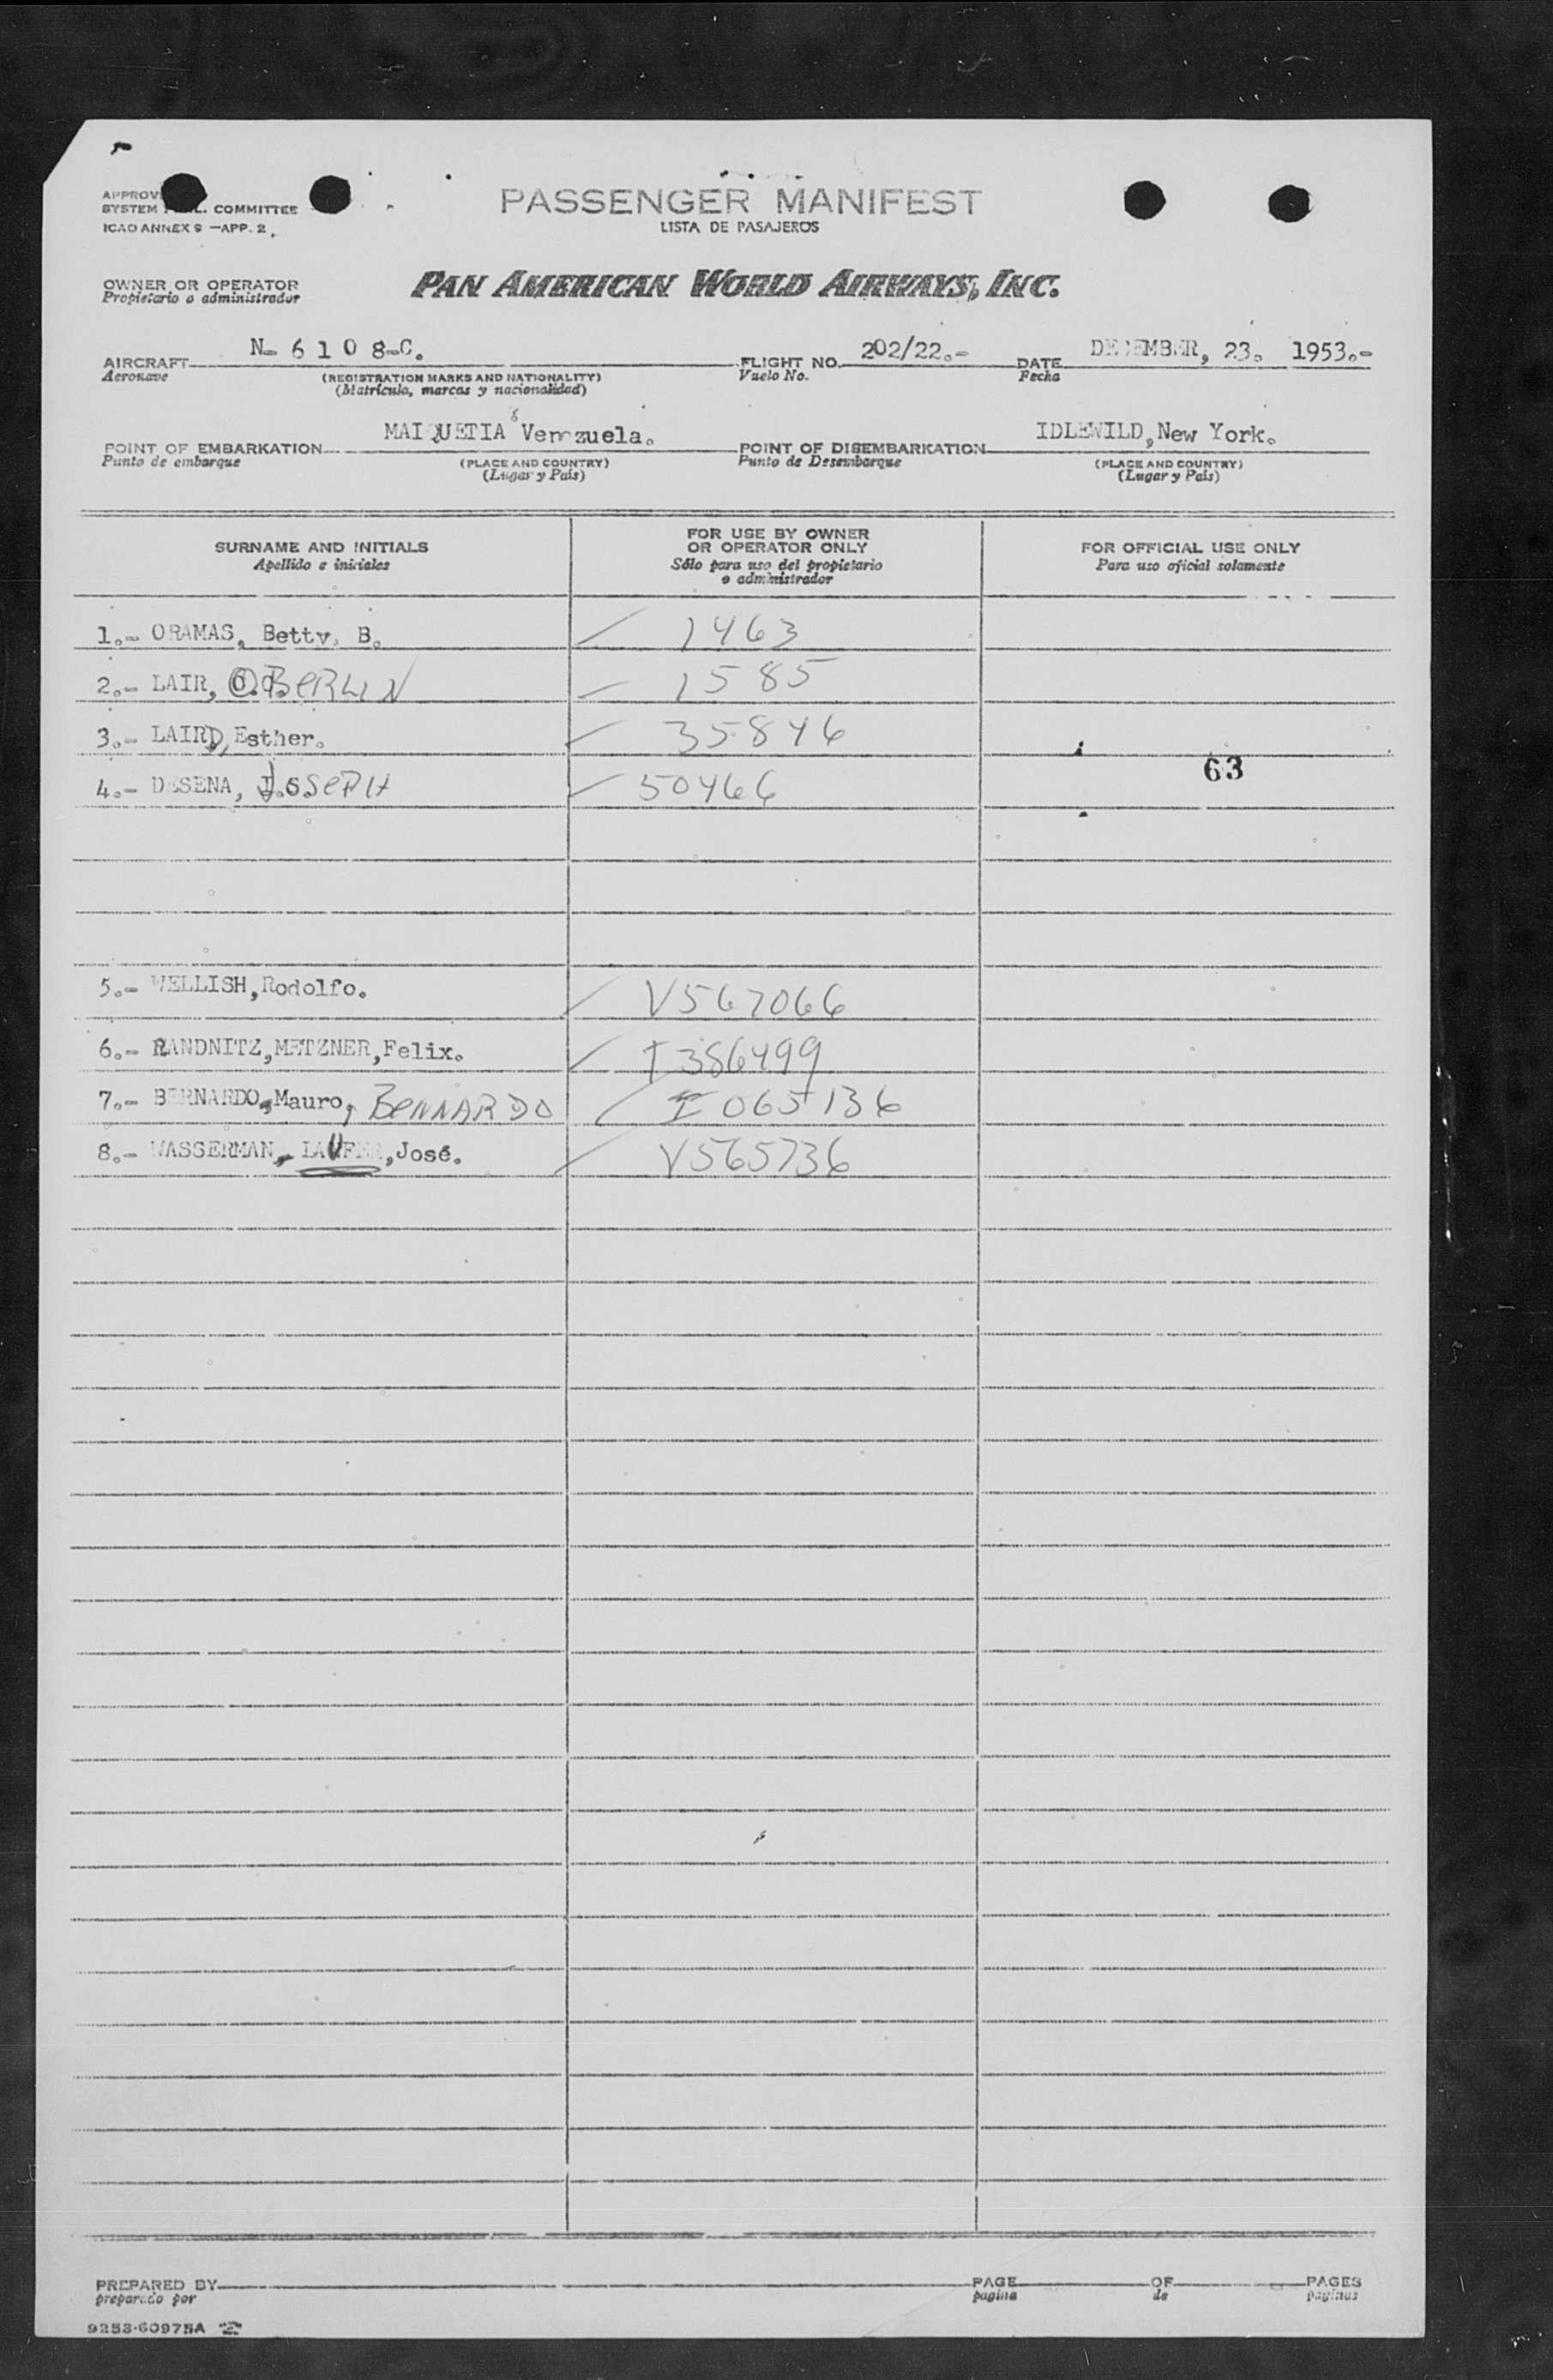 PASSENGER MANIFEST
LISTA DE PASAJEROS
SYSTEM COMMITTEE
ICAO ANNEX 9 —APP. 2
OWNER OR OPERATOR
Propietario o administrador
PAN AMERICAN WORLD AIRWAYS, INC.
AIRCRAFT N- 6 1 0 8-C. FLIGHT NO. 202/22.- DATE DECEMBER, 23. 1953.-
Aeronave (REGISTRATION MARKS AND NATIONALITY) Vuelo No. Fecha
(Matrícula, marcas y nacionalidad)
POINT OF EMBARKATION MAIQUETIA Venezuela. POINT OF DISEMBARKATION IDLEWILD, New York.
Punto de embarque (PLACE AND COUNTRY) Punto de Desembarque (PLACE AND COUNTRY)
(Lugar y País) (Lugar y País)
SURNAME AND INITIALS FOR USE BY OWNER OR OPERATOR ONLY FOR OFFICIAL USE ONLY
Apellido e iniciales Sólo para uso del propietario o administrador Para uso oficial solamente
1.- ORAMAS, Betty. B. 1463
2.- LAIR, OBERLIN 1585
3.- LAIRD, Esther. 35846
4.- DESENA, JOSEPH 50466
63
5.- WELLISH, Rodolfo. V567066
6.- RANDNITZ, METZNER, Felix. I386499
7.- BERNARDO, Mauro, BENNARDO I 065136
8.- WASSERMAN, LAUFER, José. V565736
PREPARED BY PAGE OF PAGES
preparado por pagina de paginas
9253-60975A 2